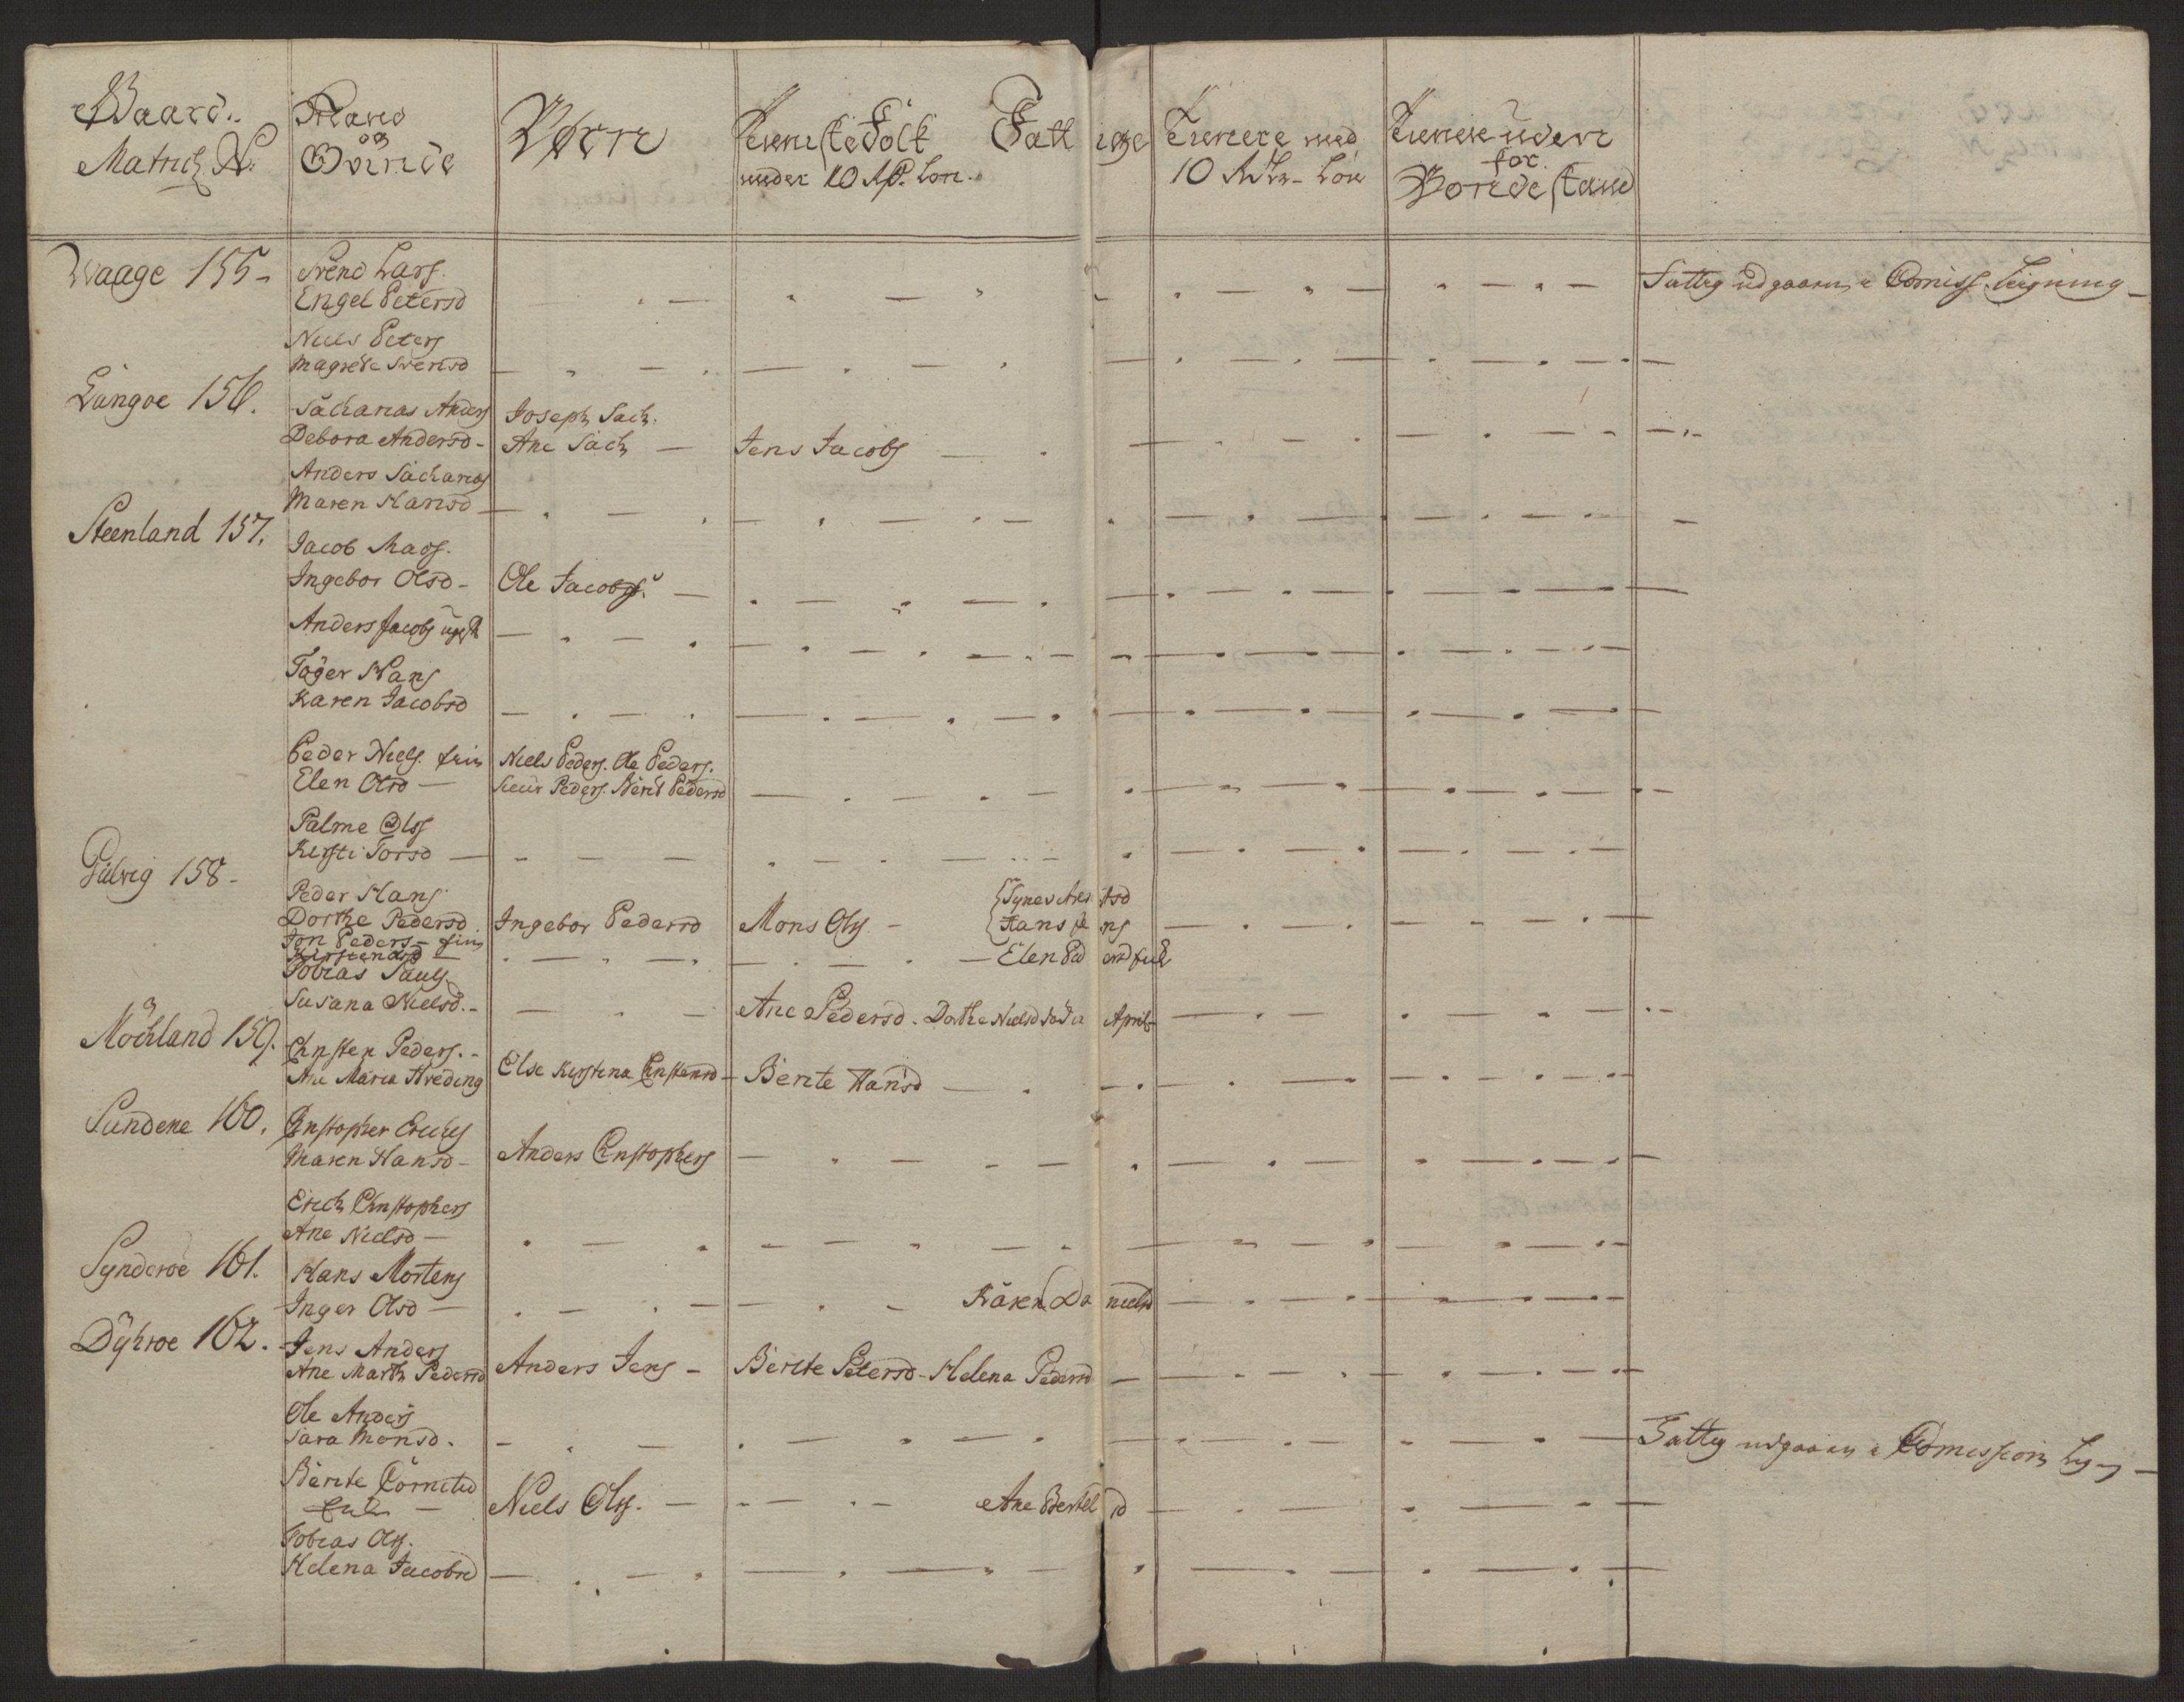 Gaard.. Matric N.
Mand og Qvinde
Børn
Tieneste Folk under 10 Rd. Lön.
Fattige
Tienere med 10 Rdr. Lön
Tienere uden for Bondestand
Waage 155 -
Svend Lars.
Engel Petersd
Fattig udgaaen i Comiss. Ligning -
Niels Peters
Magrete Svensd
Langoe 156.
Sacharias Anders Joseph Sach.
Debora Andersd - Ane Sach - Jens Jacobs
Anders Sacharias
Maren Hansd
Steenland 157.
Jacob Mars.
Ingebor Olsd - Ole Jacobs.
Anders Jacobs ugift
Töger Hans
Karen Jacobsd
Peder Niels. Niels Peders. Ole Peders.
Elen Olsd - Peders. Berit Pedersd
Palme Ols
Kersti Torsd
Gulvig 158 -
Peder Hans
Dorthe Pedersd Ingebor Pedersd Mons Ols. -
Hans Jens
Jon Peders -
Elen Pedersd
Tobias Pauls.
Susana Nielsd. - Ane Pedersd. Dorthe Nielsd April
Möchland 159.
Christen Peders. -
Ane Maria Hveding Else Kerstina Christensd - Berite Hansd
Sundene 160.
Christopher Erichs
Maren Hansd - Anders Christophers
Erich Christophers
Ane Nielsd -
Synderöe 161.
Hans Mortens
Inger Olsd - Karen Danielsd
Dyhroe 162.
Jens Anders
Ane Marth Pedersd Anders Jens - Berite Petersd - Helena Pedersd
Ole Anders
Sara Monsd.
Fattig udgaaen i Comission Lign -
Berite Cornelid
Enke - Niels Ols. - Ane Bertelsd
Tobias Ols.
Helena Jacobsd